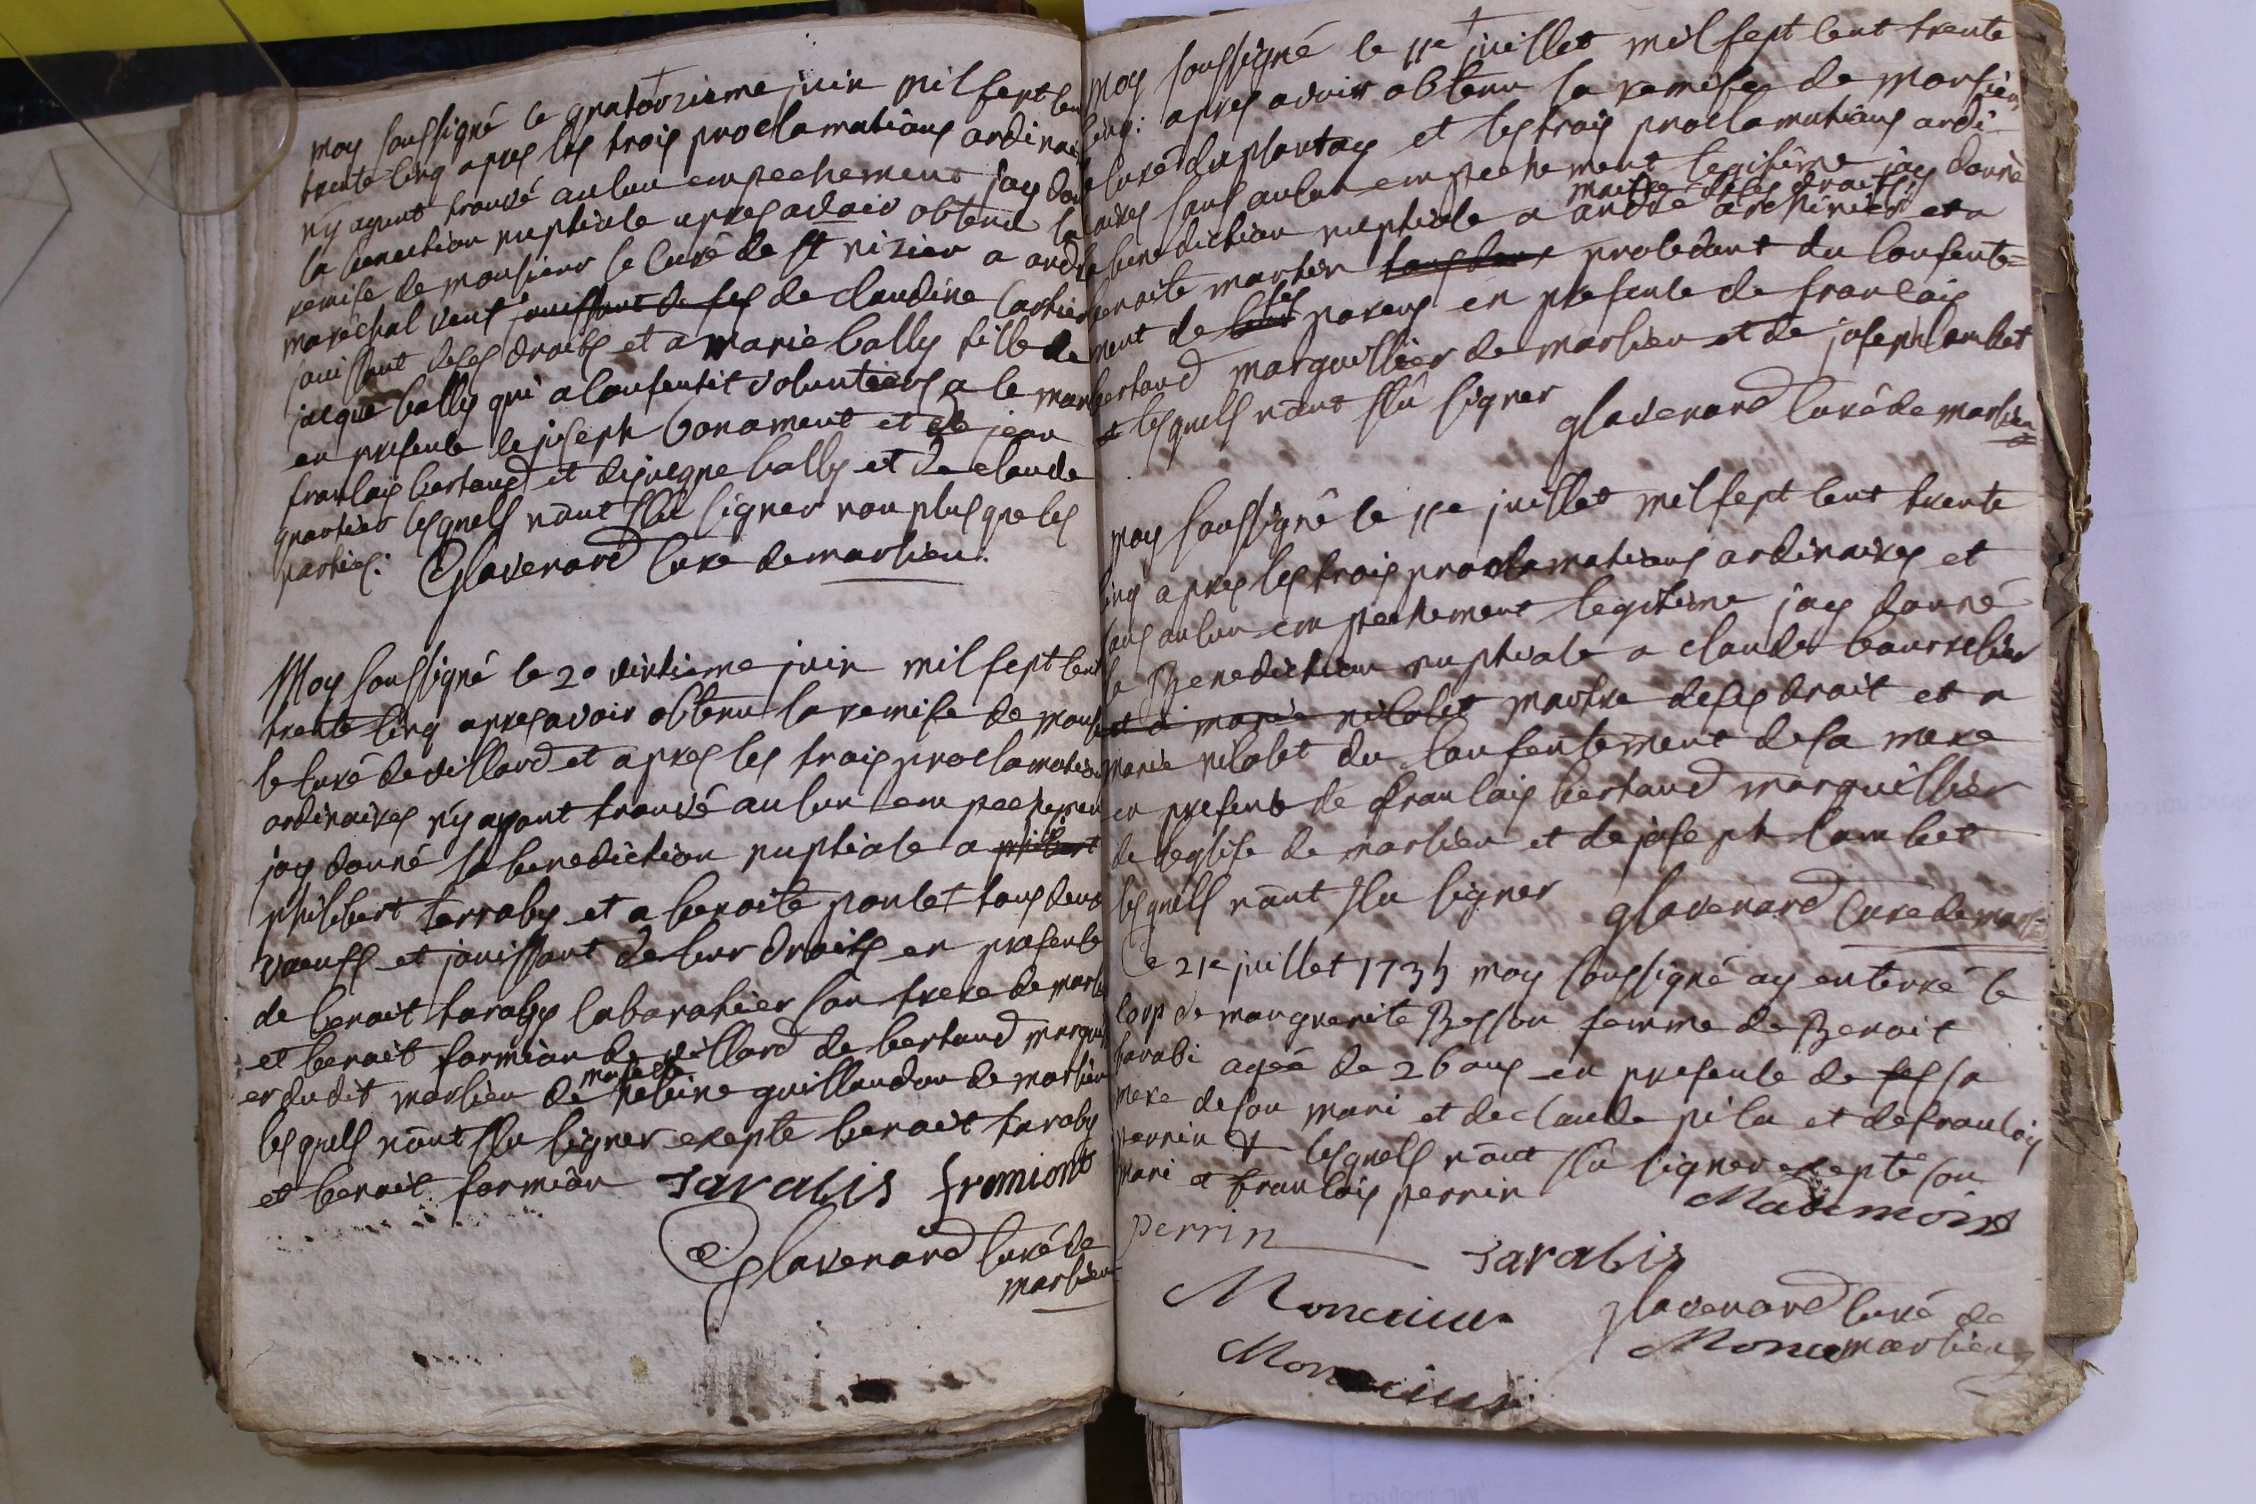 moy soussigné le quatorzieme juin mil sept cen
trente cinq apres les trois proclamations ordinai
n'y ayant trouvé aulcun empechement jay don
la benection nuptiale apres avoir obtenu la
remise de monsieur le curé de st nizier a andré
maréchal veuf jouissant de ses de claudine Carrier
jouissant de ses droits et a marie bally fille de
jacque bally qui a consentit voluntiers a le mari
en presence de joseph bonament et de jean
francois bertaud et de jacque bally et de claude
quartier lesquels n'ont sçu signer non plus que les
parties. Glavenard curé de marlieu.
Moy soussigné le 20 vintieme juin mil sept cent
trente cinq apres avoir obtenu la remise de mons
le curé de villard et apres les trois proclamation
ordinaires n'y ayant trouvé aulcun empechemen
jay donné la benediction nuptiale a philibert
philibert terraby et a benoite poulet tous deux
vaeufs et jouissant de leur droits en presence
de benoit taraby cabaratier son frere de marlieu
et benoit formion de villard de bertaud marguilli
er dudit marlieu de helaine guillaudon de marlieu
lesquels n'ont sçu signer exepte benoit taraby
et benoit formion Tarabis fromiont
Glavenard curé de
marlieu
moy soussigné le 11e juillet mil sept cent trente
cinq: apres avoir obtenu la remise de monsieur
le curé du plantay et les trois proclamations ordi-
naires sans aulcun empechement legitime jay donné
maitre de ses droits
la benediction nuptiale a andré archinier et a
benoite martin tous deux procedant du consente=
ses
ment de leur parens en presence de francois
bertaud marguillier de marlieu et de joseph lambet
et lesquels n'ont sçu signer glavenard curé de marlieu
moy soussigné le 11e juillet mil sept cent trente
cinq apres les trois proclamations ordinaires et
sans aulcun empechement legitime jay donné
la Benediction nuptiale a claude bourrelier
et a marie nicolet maitre de ses droit et a
marie nicolet du consentement de sa mere
en presence de francois bertaud marguillier
de leglise de marlieu et de joseph lambet
lesquels n'ont sçu signer glavenard curé de marl=
Ce 21e juillet 1735 moy soussigné ay enterré le
corp de marguerite Besson femme de Benoit
tarabi ageé de 26 ans en presence de ses sa
mere de son mari et de claude pila et de francois
perrin & lesquels n'ont sçu signer exepté son
mari et francois perrin
perrin Tarabis
glavenard curé de
marlieu